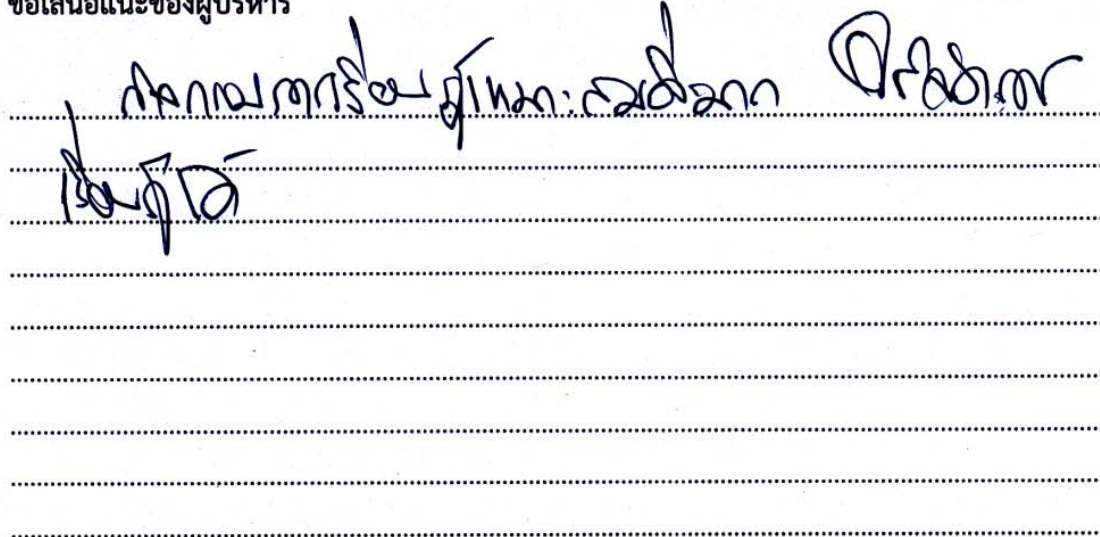 ข้อเสนอแนะของผู้บริหาร
กิจกรรมการเรียนรู้เหมาะสมดีมาก
เรียนรู้ได้